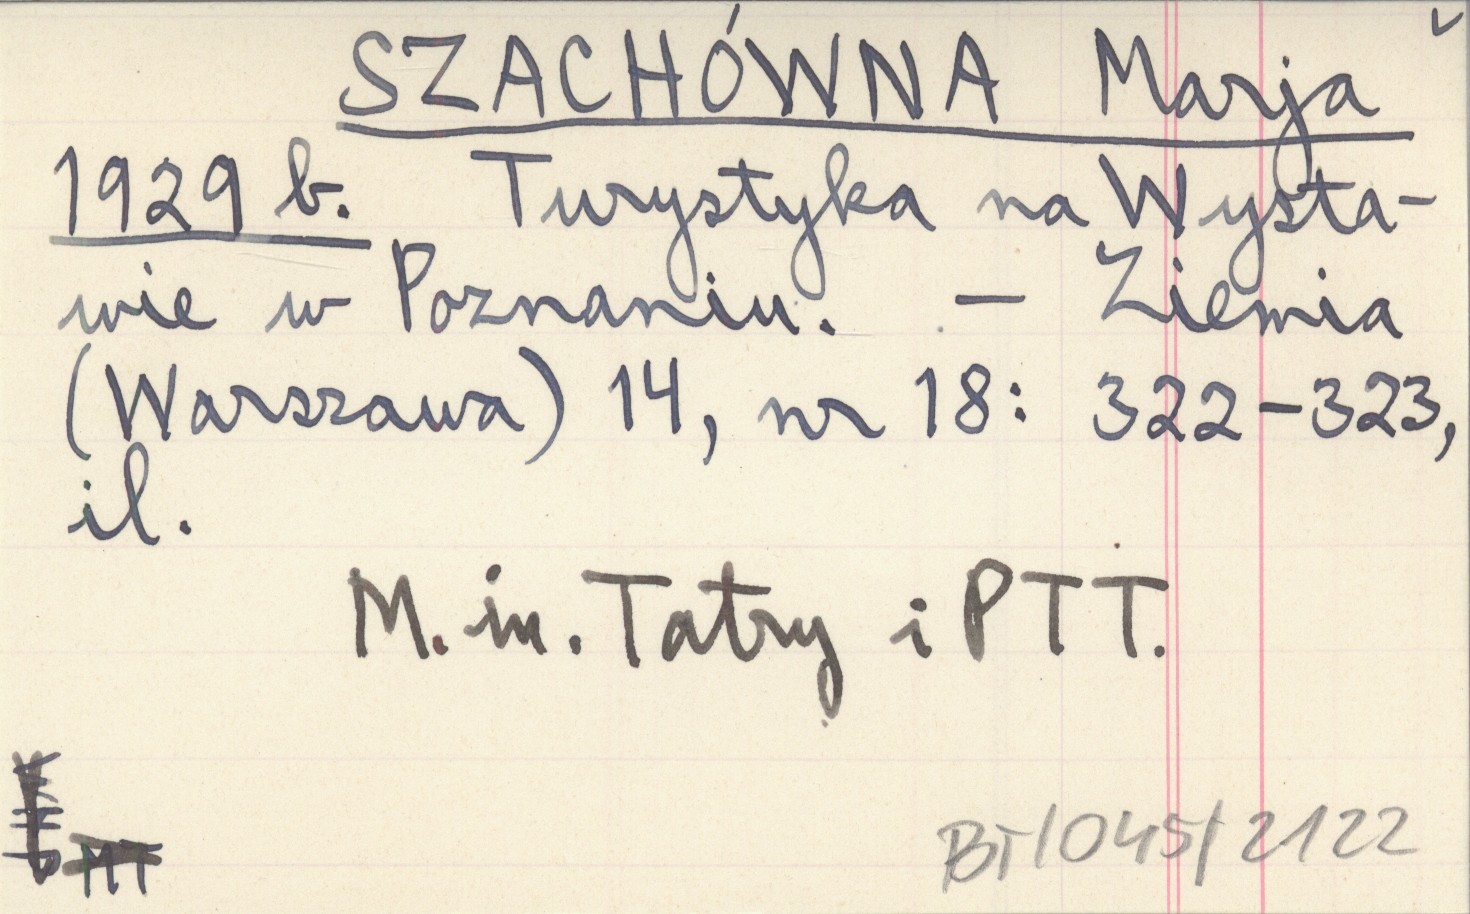 SZACHÓWNA Marja
1929 b. Turystyka na Wysta-
wie w Poznaniu. — Ziemia
(Warszawa) 14, nr 18: 322-323,
il.
M. in. Tatry i PTT.
MT
BT/045/2122